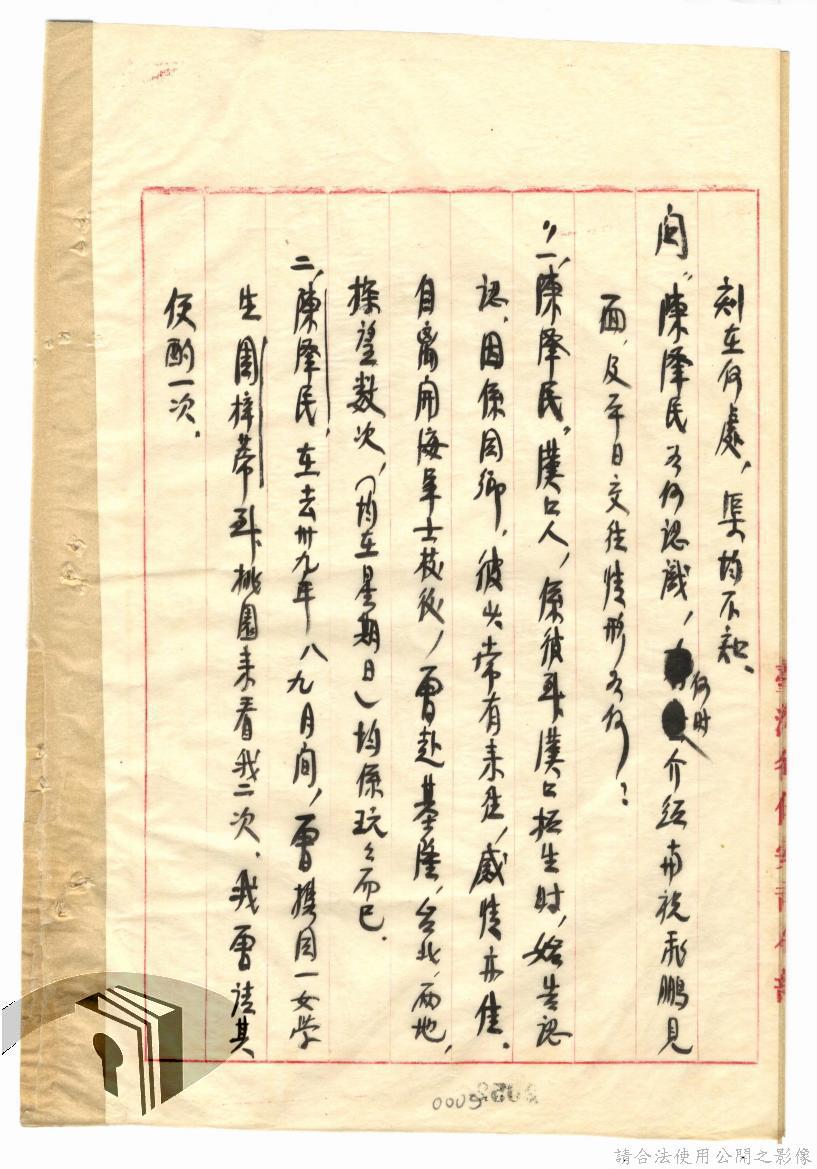 刻在何處，渠均不知、
問"陳澤民如何認識，何时介紹與祝飛鵬見
面，及平日交往情形如何？
"一、陳澤民"漢口人，係彼到漢口招生时，始告認
認．因係同鄉，彼此常有来往，感情亦佳．
自离開海軍士校後，曾赴基隆，台北，两地，
探望数次，（均在星期日）均係玩々而已．
二、陳澤民，在去卅九年八九月间，曾携同一女学
生周梓蒂到桃園来看我二次．我曾請其
便酌一次．
0009
請合法使用公開之影像